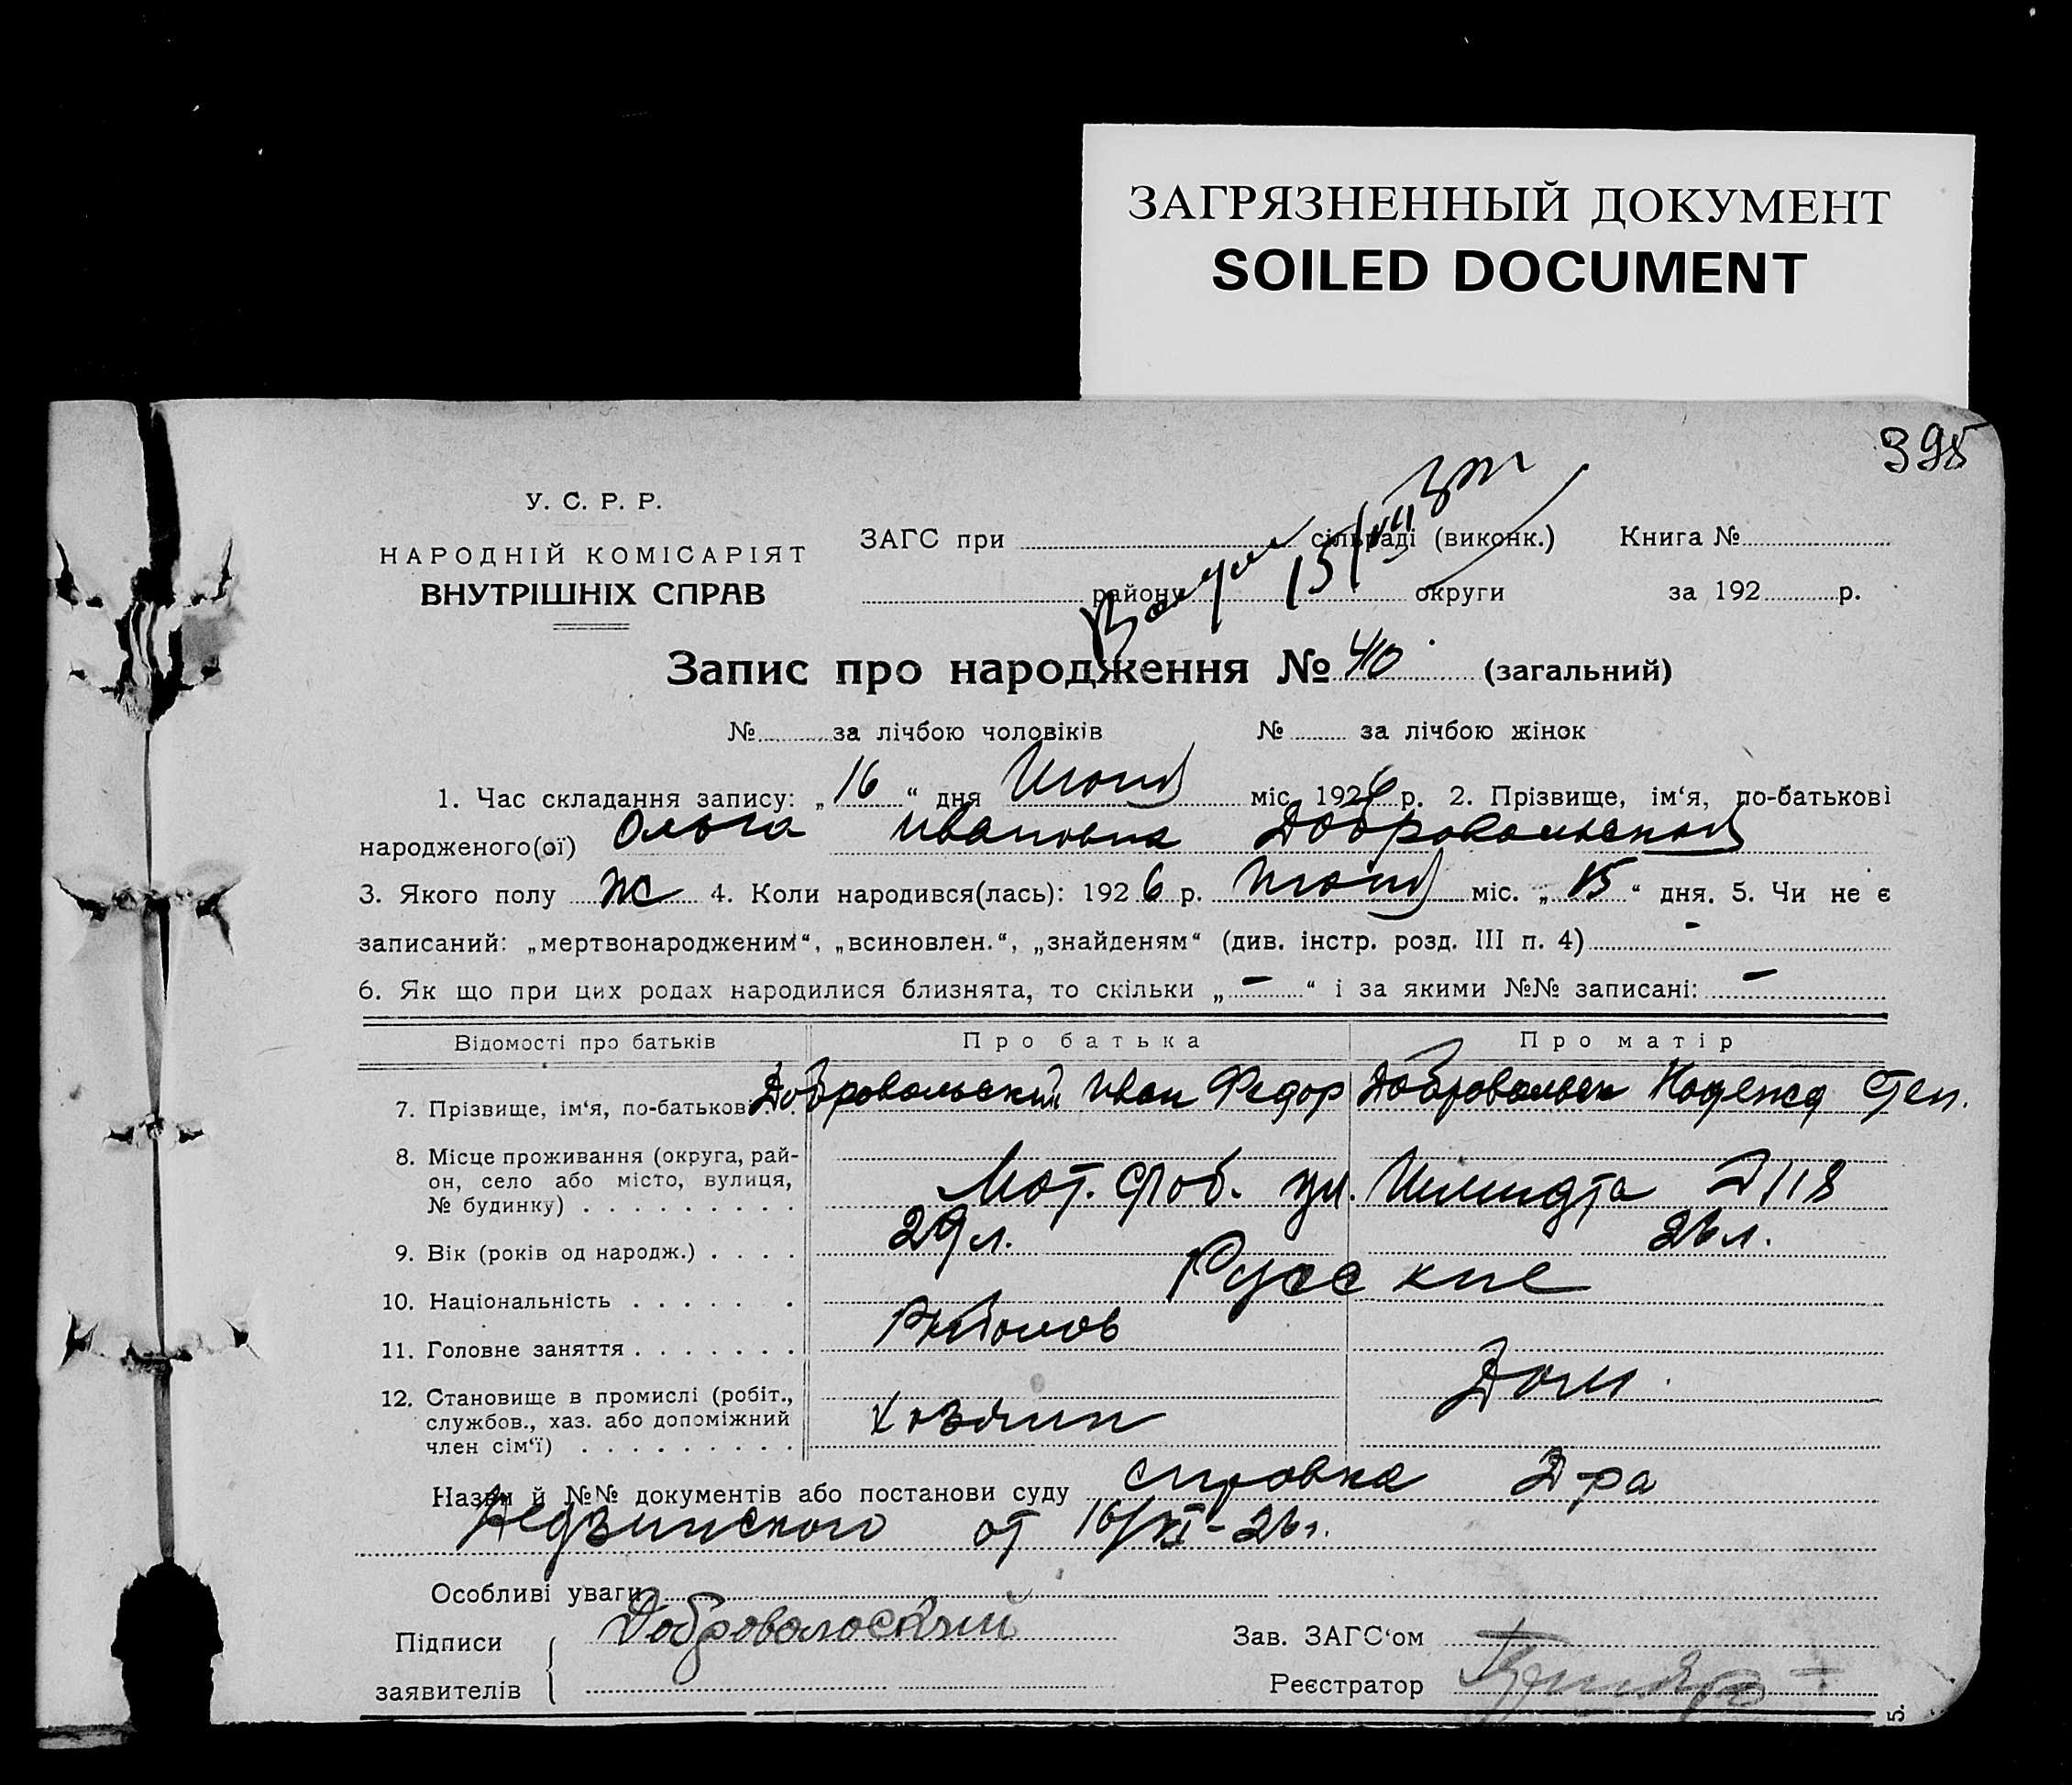 ЗАГРЯЗНЕННЫЙ ДОКУМЕНТ
SOILED DOCUMENT
395
У. С. Р. Р.
НАРОДНІЙ КОМІСАРІЯТ
ВНУТРІШНІХ СПРАВ
ЗАГС при сільраді (виконк.) Книга №
району округи за 192 р.
15/XII
Запис про народження № 410 (загальний)
№ за лічбою чоловіків № за лічбою жінок
1. Час складання запису: „16“ дня Июня міс. 1926 р. 2. Прізвище, ім‘я, по-батькові
народженого(ої) Ольга Ивановна Добровольская
3. Якого полу ж 4. Коли народився(лась): 1926 р. Июня міс. „15“ дня. 5. Чи не є
записаний: „мертвонародженим“, „всиновлен.“, „знайденям“ (див. інстр. розд. III п. 4) -
6. Як що при цих родах народилися близнята, то скільки „-“ і за якими №№ записані: -
Відомості про батьків Про батька Про матір
7. Прізвище, ім‘я, по-батькові . . Добровольский Иван Федор Добровольск Надежд Степ.
8. Місце проживання (округа, рай-
он, село або місто, вулиця,
№ будинку) . . . . . . . . . Слоб. ул. Шмидта 18
9. Вік (років од народж.) . . . . 29 л. 26 л.
10. Національність . . . . . . Русские
11. Головне заняття . . . . . . .
12. Становище в промислі (робіт.,
службов., хаз. або допоміжний
член сім‘ї) . . . . . . . . . Хозяин Дом.
Назви й №№ документів або постанови суду справка Д-ра
от 16/VI-26 г.
Особливі уваги
Підписи Добровольский Зав. ЗАГС‘ом
заявителів Реєстратор